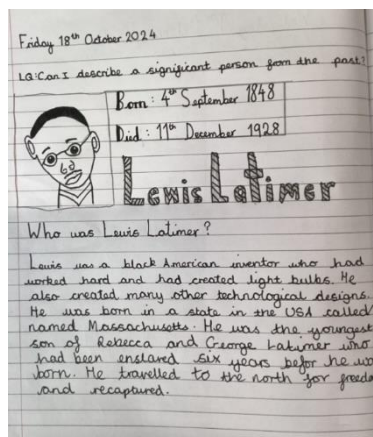 Friday 18th October 2024
LQ: Can I describe a significant person from the past?
Born: 4th September 1848
Died: 11th December 1928
Lewis Latimer
Who was Lewis Latimer?
Lewis was a black American inventor who had
worked hard and had created light bulbs. He
also created many other technological designs.
He was born in a state in the USA called
named Massachusetts. He was the youngest
son of Rebecca and George Latimer who
had been enslaved six years befor he
born. He travelled to the north for
and recaptured.